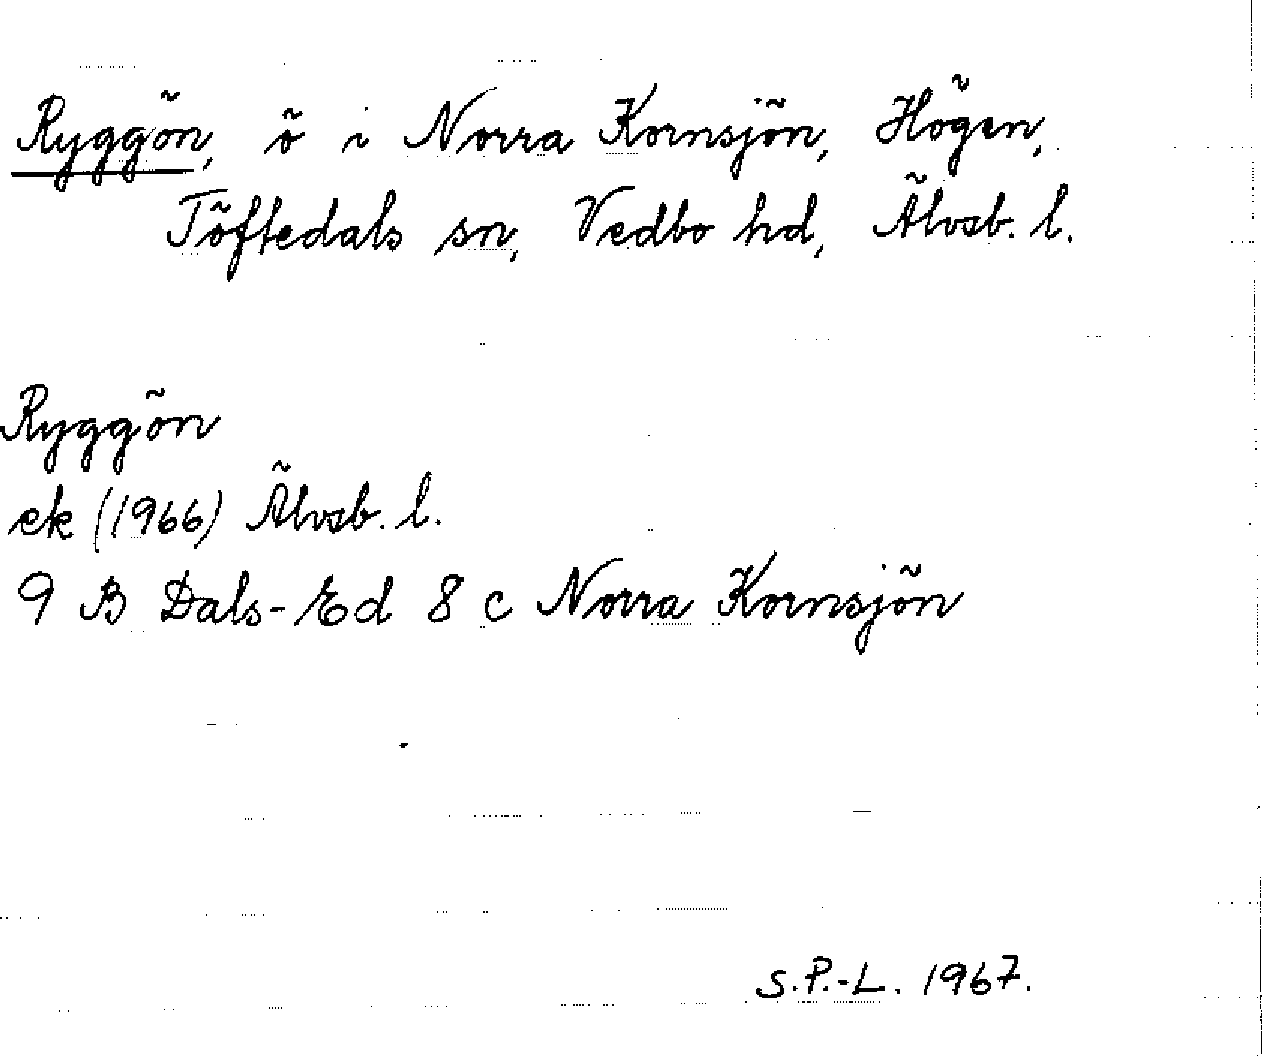 Ryggön, ö i Norra Kornsjön, Högen,
Töftedals sn, Vedbo hd, Älvsb. l.
Ryggön
ek (1966) Älvsb. l.
9 B Dals-Ed 8 c Norra Kornsjön
S.P.-L. 1967.